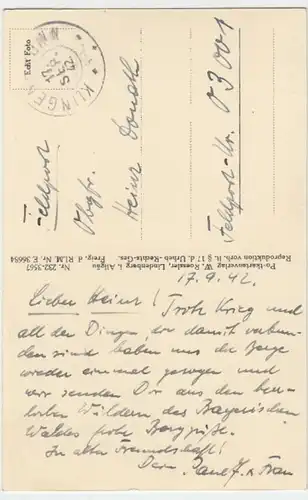 Echt Foto
KLINGEN
17. SEP. 42
Feldpost
Obgfr.
Heinz Donath
Feldpost-Nr. 03001
Postkartenverlag W. Roessler, Lindenberg i. Allgäu
Reproduktion vorb. lt. § 17 d. Urheb.-Rechts-Ges.
Nr. 252.3567 Freig. d. RLM. Nr. E 36654
17.9.42.
Lieber Heinz! Trotz Krieg und
all den Dingen, die damit verbun-
den sind haben uns die Berge
wieder einmal gezogen und
wir senden Dir aus den herr-
lichen Wäldern des Bayrischen
Waldes frohe Berggrüße.
In alter Freundschaft!
Dein u. Frau